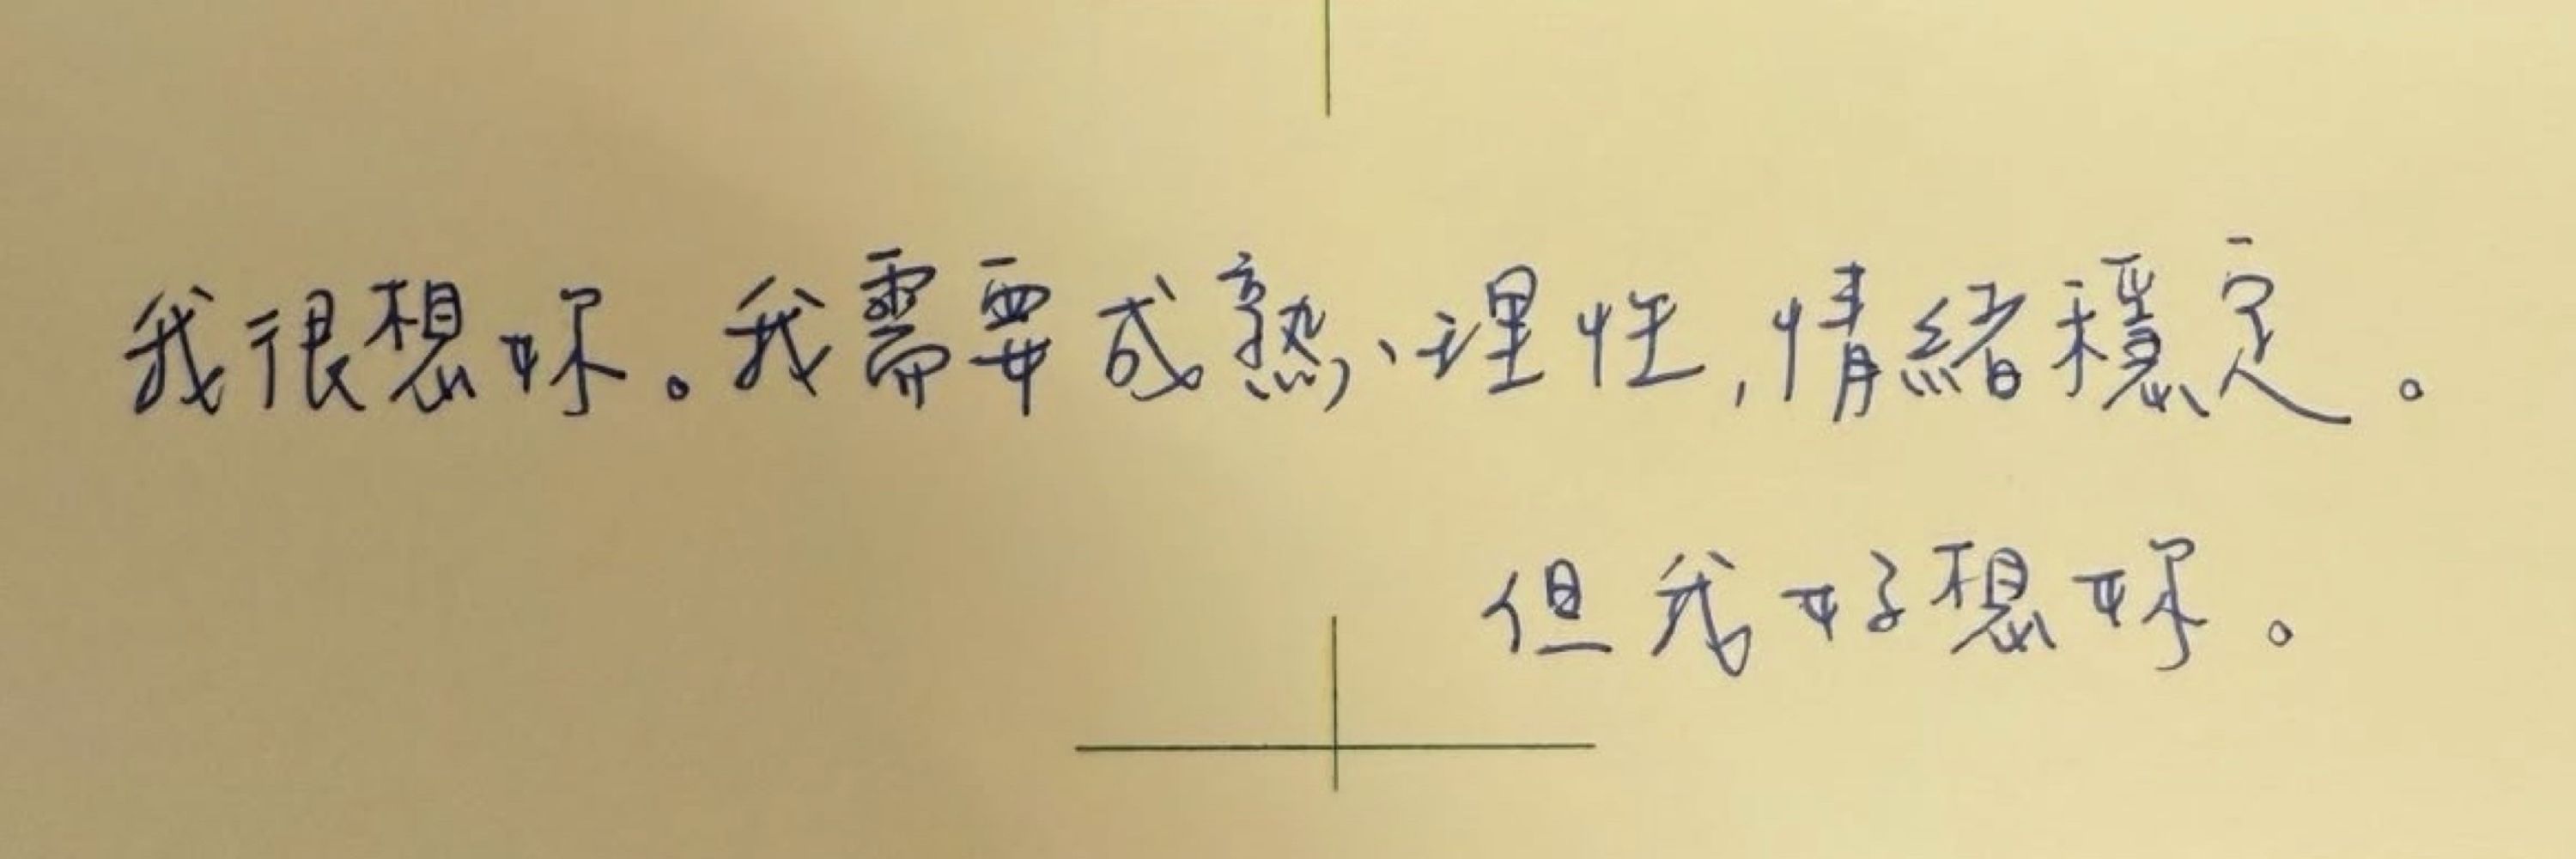 我很想妳。我需要成熟、理性,情緒穩定。
但我好想妳。